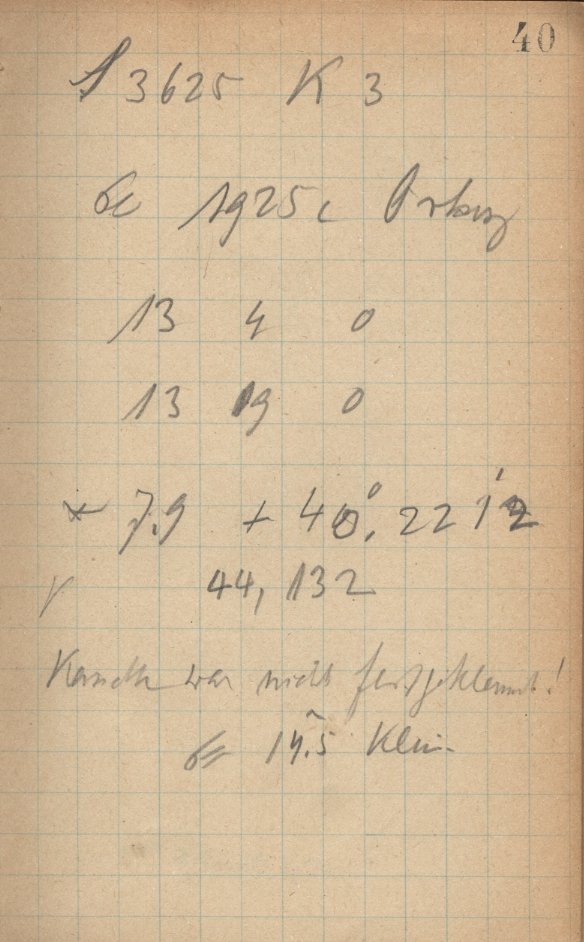 40
S 3625 K 3
1925 c
13 4 0
13 19 0
* 7.9 + 40°, 22 1'2
44, 132
Kassette war nicht festgeklemmt!
14.5 Klein.